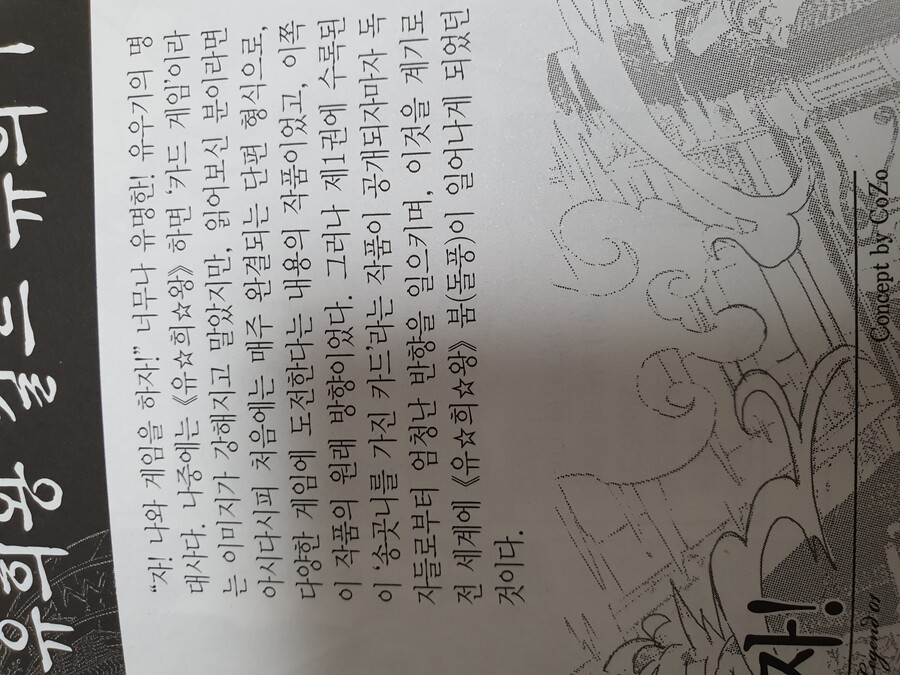 유희왕 월드
"자! 나와 게임을 하자!" 너무나 유명한! 유우기의 명
대사다. 나중에는 《유☆희☆왕》 하면 '카드 게임'이라
는 이미지가 강해지고 말았지만, 읽어보신 분이라면
아시다시피 처음에는 매주 완결되는 단편 형식으로,
다양한 게임에 도전한다는 내용의 작품이었고, 이쪽
이 작품의 원래 방향이었다. 그러나 제1권에 수록된
이 '송곳니를 가진 카드'라는 작품이 공개되자마자 독
자들로부터 엄청난 반향을 일으키며, 이것을 계기로
전 세계에 《유☆희☆왕》 붐(돌풍)이 일어나게 되었던
것이다.
자!
Legend 01
Concept by CoZo